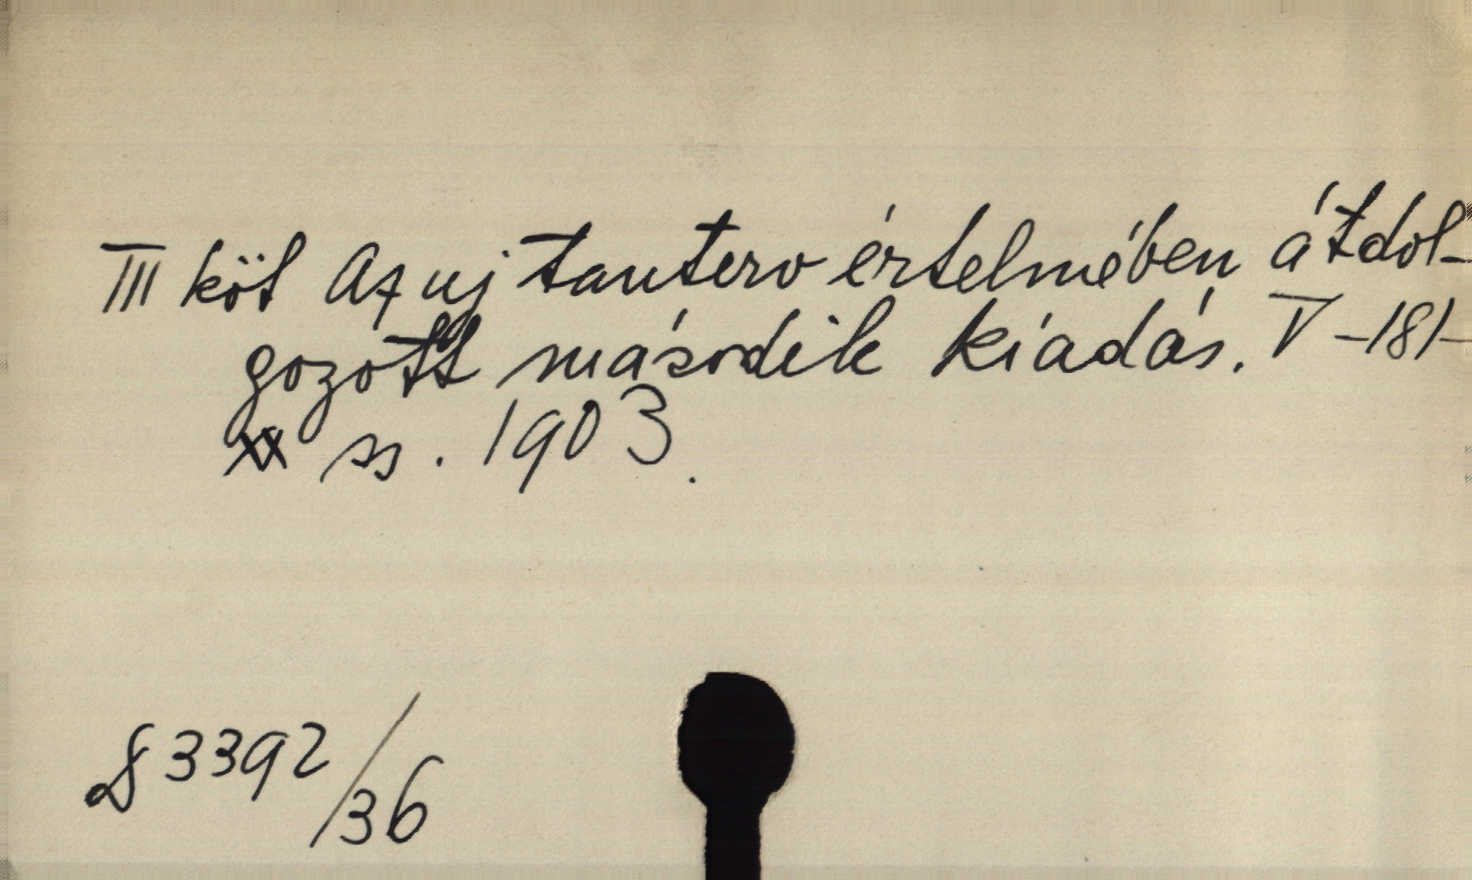 III köt Az uj tanterv értelmében átdol-
gozott második kiadás. V -181-
ss. 1903.
§ 3392/36